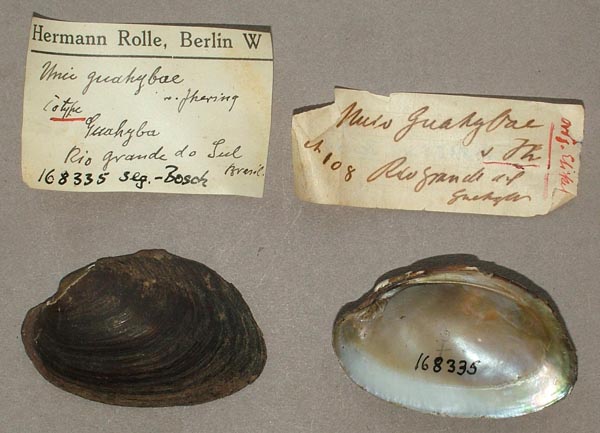 Hermann Rolle, Berlin W
Unio guahybae
v. Jhering
Cotype
Guahyba
Rio grande do Sul
Brasil.
168335 seg.-Bosch
Unio Guahybae
v Jh
108 Rio grande del
Guahyba
orig.
168335